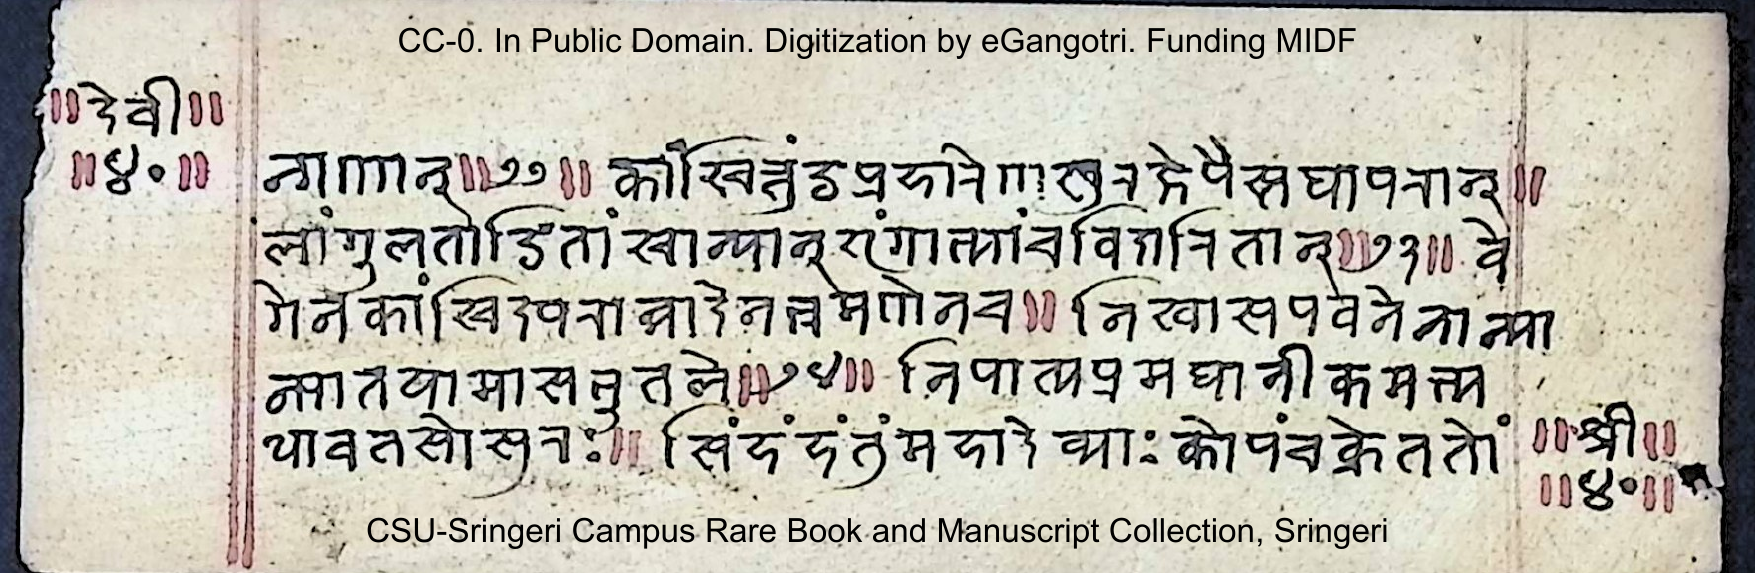 CC-0. In Public Domain. Digitization by eGangotri. Funding MIDF
॥देवी॥
॥४०॥
न्गणान्॥२२॥ कांश्चित्तुंडप्रहारेणखुरक्षेपैस्तथापरान्॥
लांगुलताडितांश्चान्यान्शृंगाभ्यांचविदारितान्॥२३॥ वे
गेनकांश्चिदपरान्नादेनभ्रमणेनच॥ निश्वासपवनेनान्या
न्पातयामासभुतले॥२४॥ निपात्यप्रमथानीकमभ्य
धावतसोसुरः॥ सिंहंहंतुंमहादेव्याः कोपंचक्रेततों
॥श्री॥
॥४०॥
CSU-Sringeri Campus Rare Book and Manuscript Collection, Sringeri